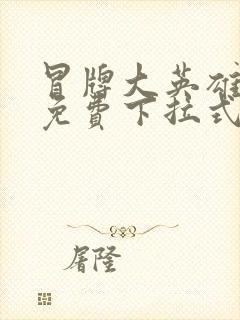 冒牌大英雄
免费下拉式
屠隆